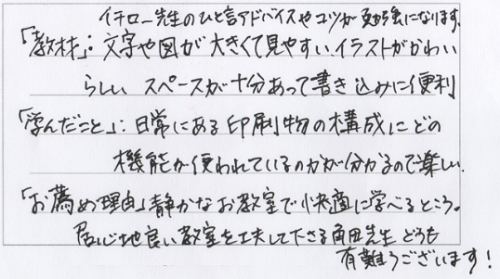 イチロー先生のひと言アドバイスやコツが勉強になります。
「教材」:文字や図が大きくて見やすい.イラストがかわい
らしい スペースが十分あって書き込みに便利
「学んだこと」:日常にある印刷物の構成にどの
機能が使われているのかが分かるので楽しい.
「お薦め理由」静かなお教室で快適に学べるところ。
居心地良い教室を工夫して下さる角田先生どうも
有難うございます!